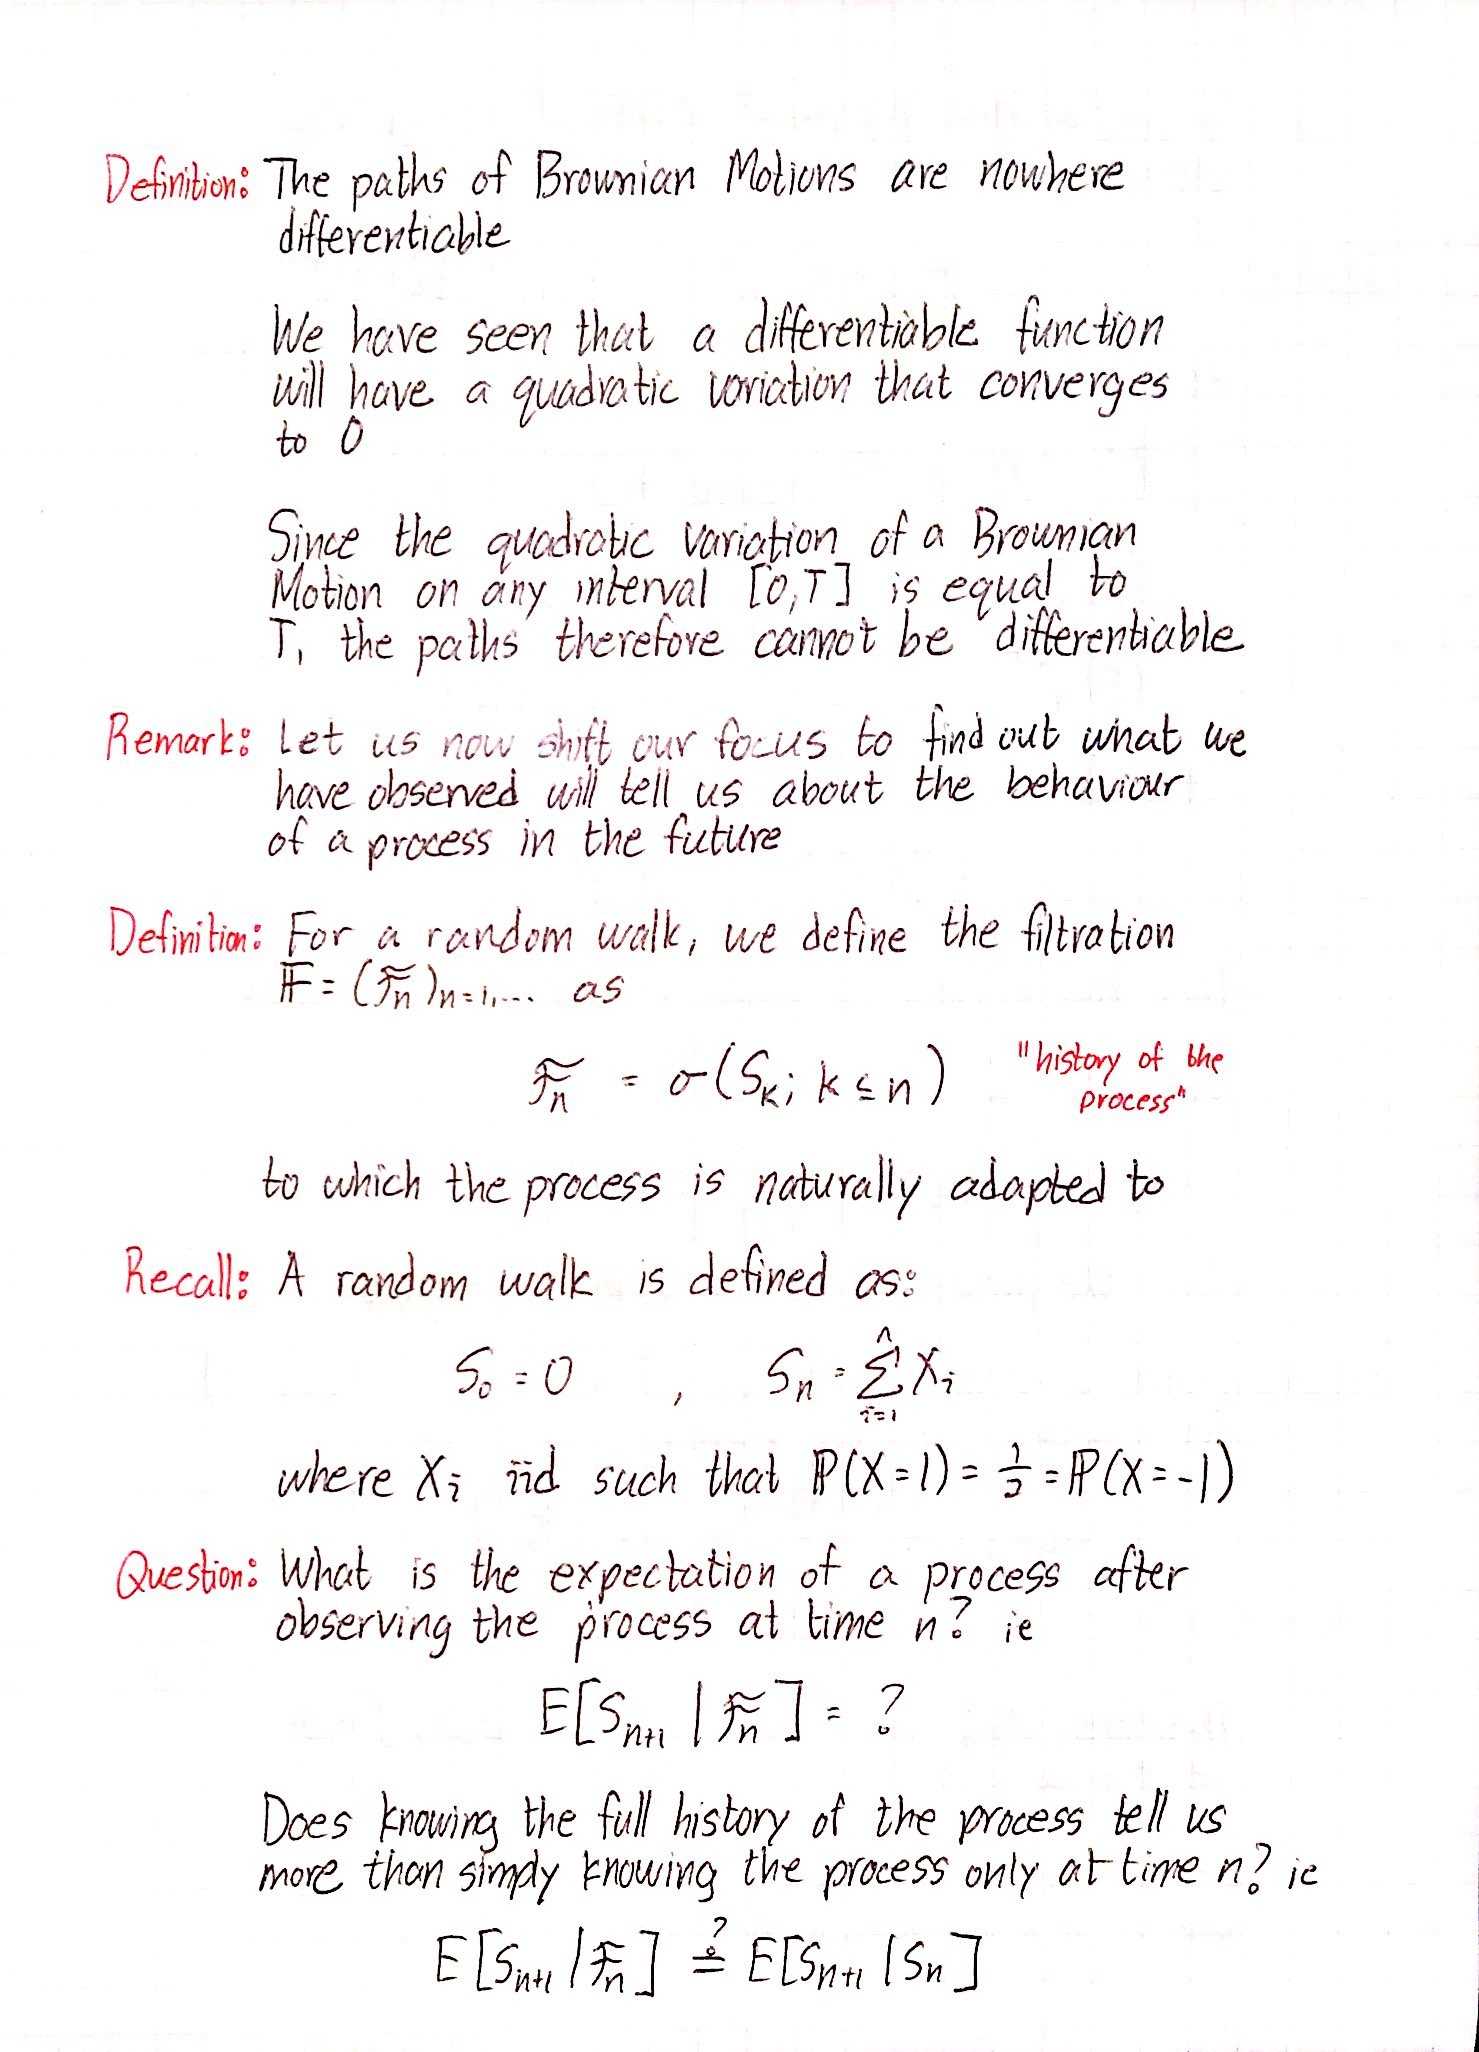 Definition: The paths of Brownian Motions are nowhere
differentiable
We have seen that a differentiable function
will have a quadratic variation that converges
to 0
Since the quadratic variation of a Brownian
Motion on any interval [0,T] is equal to
T, the paths therefore cannot be differentiable
Remark: Let us now shift our focus to find out what we
have observed will tell us about the behaviour
of a process in the future
Definition: For a random walk, we define the filtration
𝔽 = (ℱₙ)ₙ₌₁,... as
ℱₙ = σ(Sₖ; k ≤ n) "history of the
process"
to which the process is naturally adapted to
Recall: A random walk is defined as:
S₀ = 0 , Sₙ = Σⁿᵢ₌₁ Xᵢ
where Xᵢ iid such that ℙ(X=1) = 1/2 = ℙ(X=-1)
Question: What is the expectation of a process after
observing the process at time n? ie
E[Sₙ₊₁ | ℱₙ] = ?
Does knowing the full history of the process tell us
more than simply knowing the process only at time n? ie
E[Sₙ₊₁ | ℱₙ] ≟ E[Sₙ₊₁ | Sₙ]